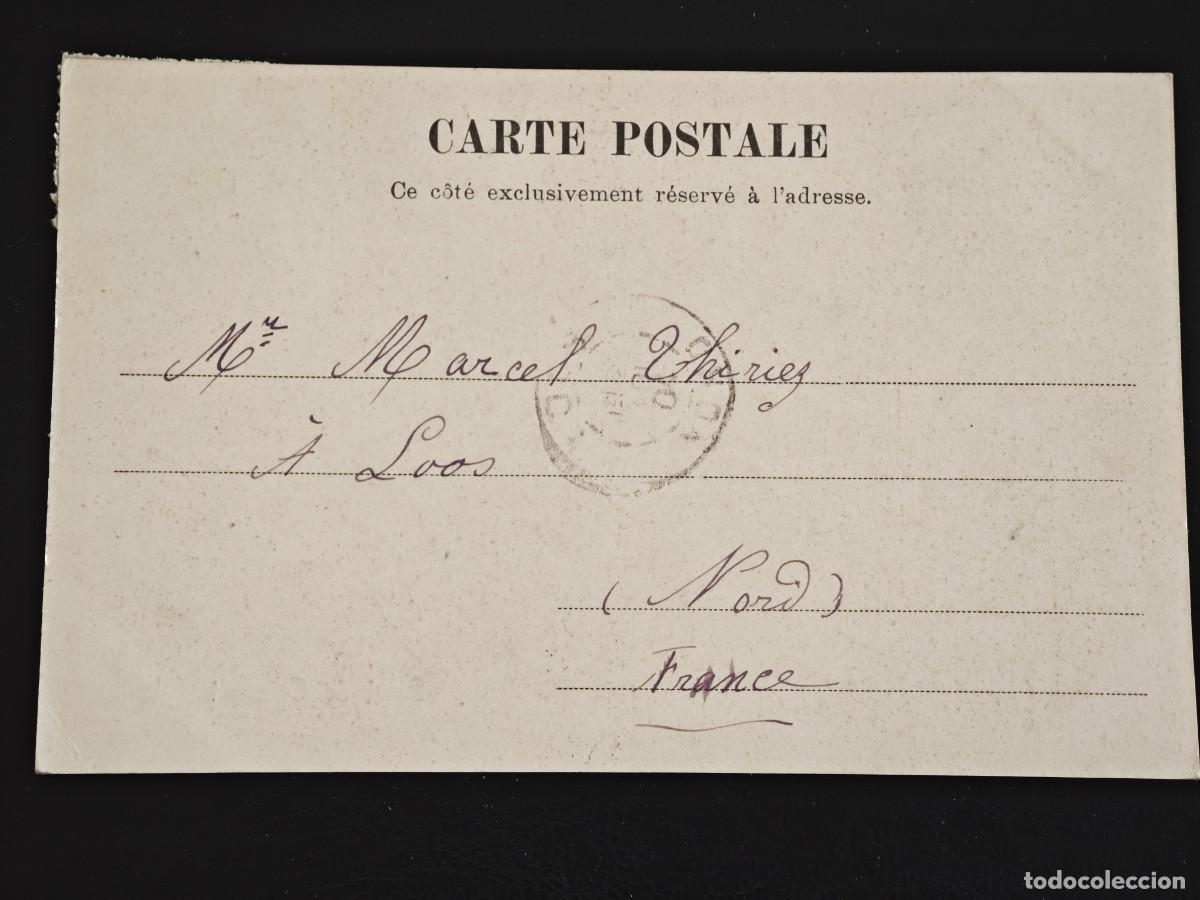 CARTE POSTALE
Ce côté exclusivement réservé à l'adresse.
Mr Marcel Thiriez
À Loos
(Nord)
France
todocoleccion